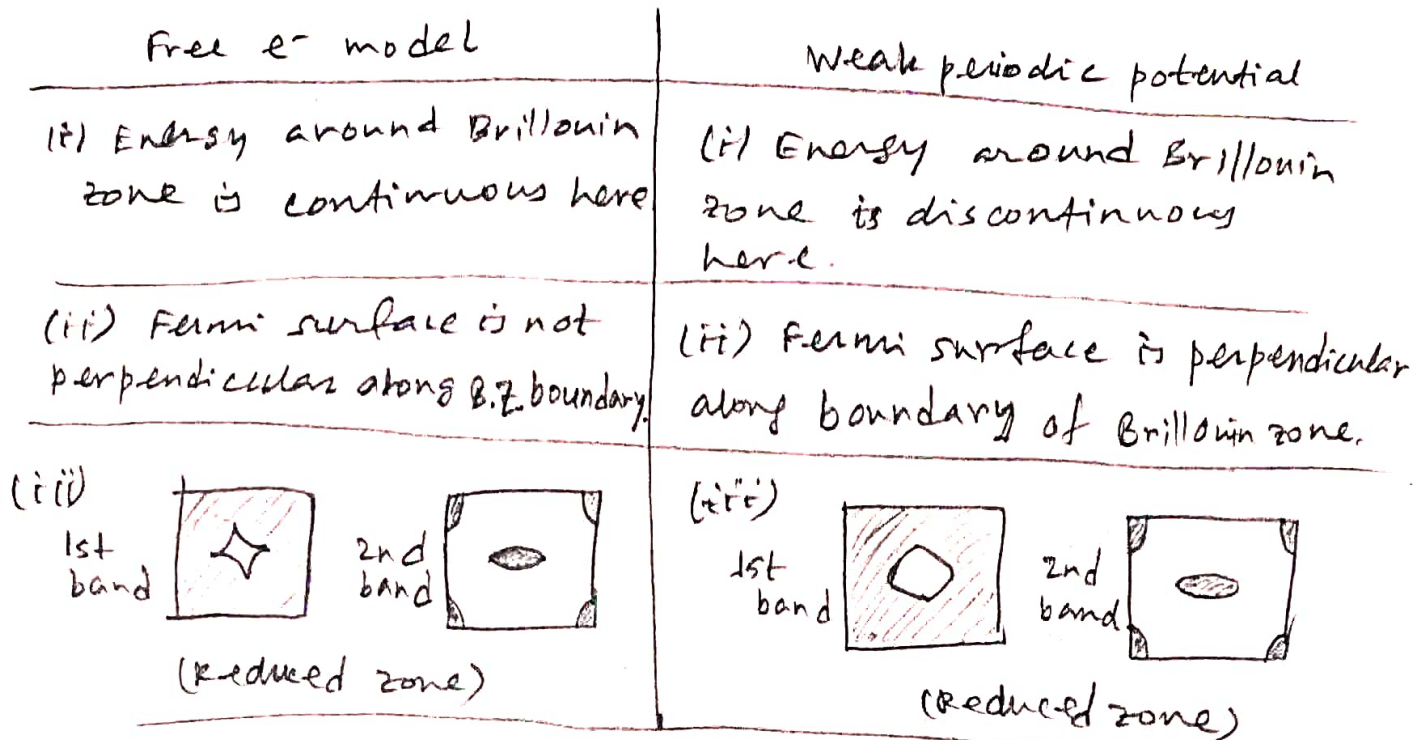 Free e⁻ model
Weak periodic potential
(i) Energy around Brillouin
zone is continuous here
(i) Energy around Brillouin
zone is discontinuous
here.
(ii) Fermi surface is not
perpendicular along B.Z. boundary.
(ii) Fermi surface is perpendicular
along boundary of Brillouin zone.
(iii)
1st
band
2nd
band
(Reduced zone)
(iii)
1st
band
2nd
band
(Reduced zone)